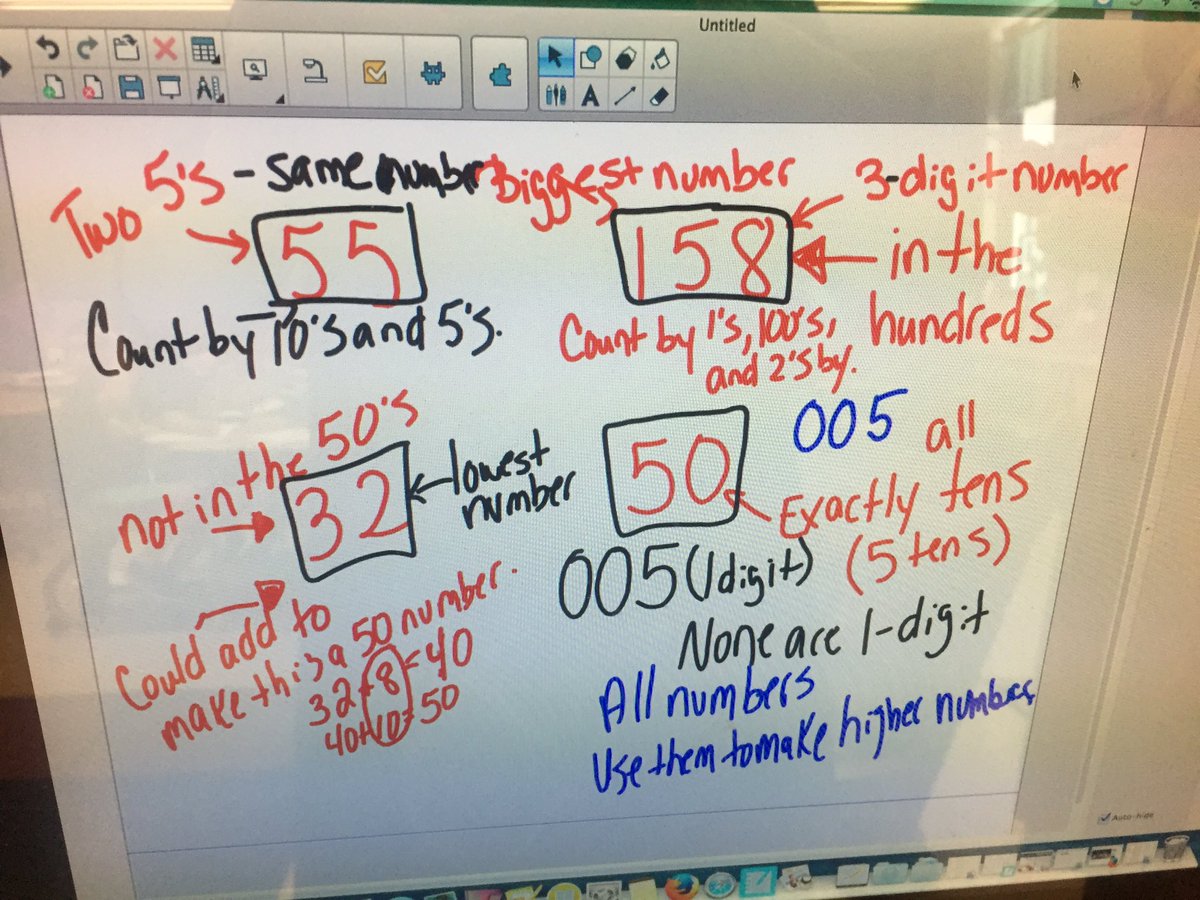 Untitled
Two 5's - same number
55
Count by 10's and 5's.
Biggest number
3-digit number
158
in the
hundreds
Count by 1's, 100's,
and 2's by.
not in the 50's
32
lowest
number
Could add to
make this a 50 number.
32+8=40
40+10=50
50
005
all
Exactly tens
(5 tens)
005 (1 digit)
None are 1-digit
All numbers
Use them to make higher numbers
Auto-hide